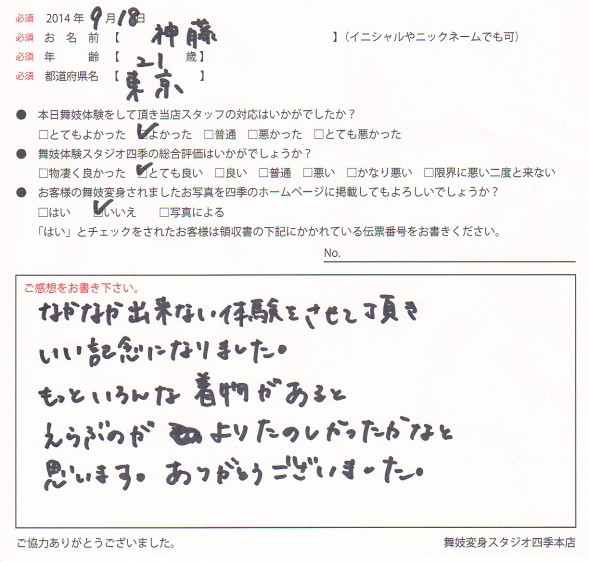 必須 2014年 9月 18日
必須 お名前【 神藤 】(イニシャルやニックネームでも可)
必須 年齢【 21 歳】
必須 都道府県名【 東京 】
● 本日舞妓体験をして頂き当店スタッフの対応はいかがでしたか?
□とてもよかった ☑よかった □普通 □悪かった □とても悪かった
● 舞妓体験スタジオ四季の総合評価はいかがでしょうか?
□物凄く良かった ☑とても良い □良い □普通 □悪い □かなり悪い □限界に悪い二度と来ない
● お客様の舞妓変身されましたお写真を四季のホームページに掲載してもよろしいでしょうか?
□はい ☑いいえ □写真による
「はい」とチェックをされたお客様は領収書の下記にかかれている伝票番号をお書きください。
No.
ご感想をお書き下さい。
なかなか出来ない体験をさせて頂き
いい記念になりました。
もっといろんな着物があると
えらぶのが よりたのしかったかなと
思います。ありがとうございました。
ご協力ありがとうございました。 舞妓変身スタジオ四季本店